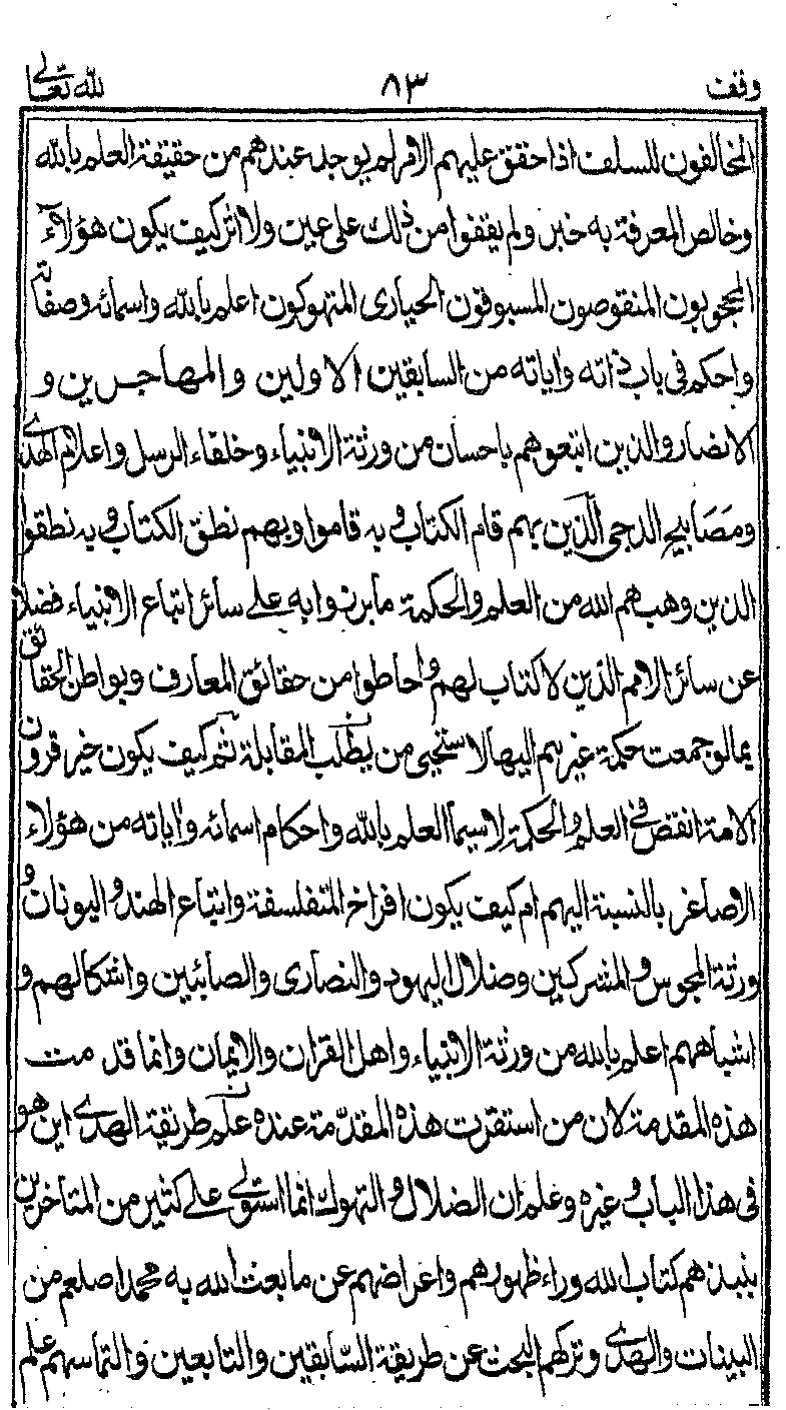 وقف ٨٣ لله تعالى
المخالفون للسلف اذا حقق عليهم الامر لم يوجد عندهم من حقيقة العلم بالله
وخالص المعرفة به خبر ولم يقفوا من ذلك على عين ولا اثر كيف يكون هؤلاء
المحجوبون المنقوصون المسبوقون الحيارى المتهوكون اعلم بالله واسمائه وصفاته
واحكم فى باب ذاته وآياته من السابقين الاولين والمهاجرين و
الانصار والذين اتبعوهم باحسان من ورثة الانبياء وخلفاء الرسل واعلام الهدى
ومصَابيح الدجى الّذين بهم قام الكتاب وبه قاموا وبهم نطق الكتاب وبه نطقوا
الذين وهبهم الله من العلم والحكمة ما برزوا به على سائر اتباع الانبياء فضلا
عن سائر الامم الذين لا كتاب لهم واحاطوا من حقائق المعارف وبواطن الحقائق
بما لو جمعت حكمة غيرهم اليها لاستحيى من يطلب المقابلة ثم كيف يكون خير قرون
الامة انقص فى العلم والحكمة لاسيما العلم بالله واحكام اسمائه وآياته من هؤلاء
الاصاغر بالنسبة اليهم ام كيف يكون افراخ المتفلسفة واتباع الهند واليونان و
ورثة المجوس والمشركين وضلال اليهود والنصارى والصابئين واشكالهم و
اشباههم اعلم بالله من ورثة الانبياء واهل القران والايمان وانما قدمت
هذه المقدمة لان من استقرت هذه المقدّمة عنده علم طريقة الهدى اين هو
فى هذا الباب وغيره وعلم ان الضلال والتهوك انما استولى على كثير من المتأخرين
بنبذهم كتاب الله وراء ظهورهم واعراضهم عن ما بعث الله به محمدا صلعم من
البينات والهدى وتركهم البحث عن طريقة السّابقين والتابعين والتماسهم علم